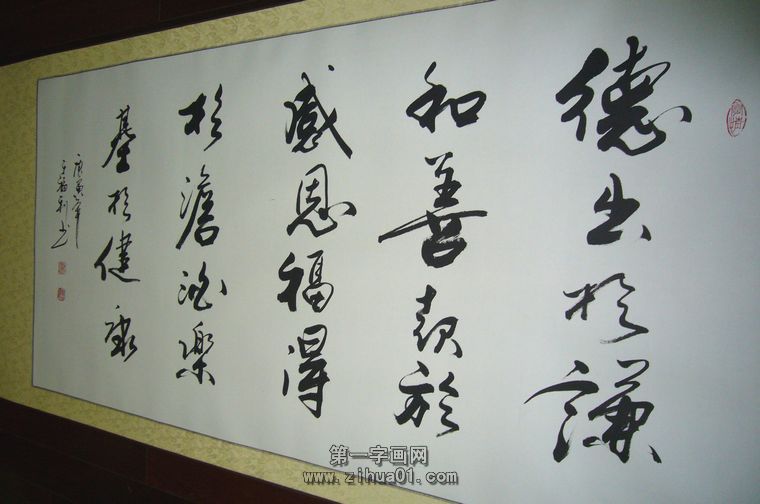 德出於謙
和善報於
感恩福得
於澹泊樂
基於健康
庚寅年
福利书
第一字画网
www.zihua01.com